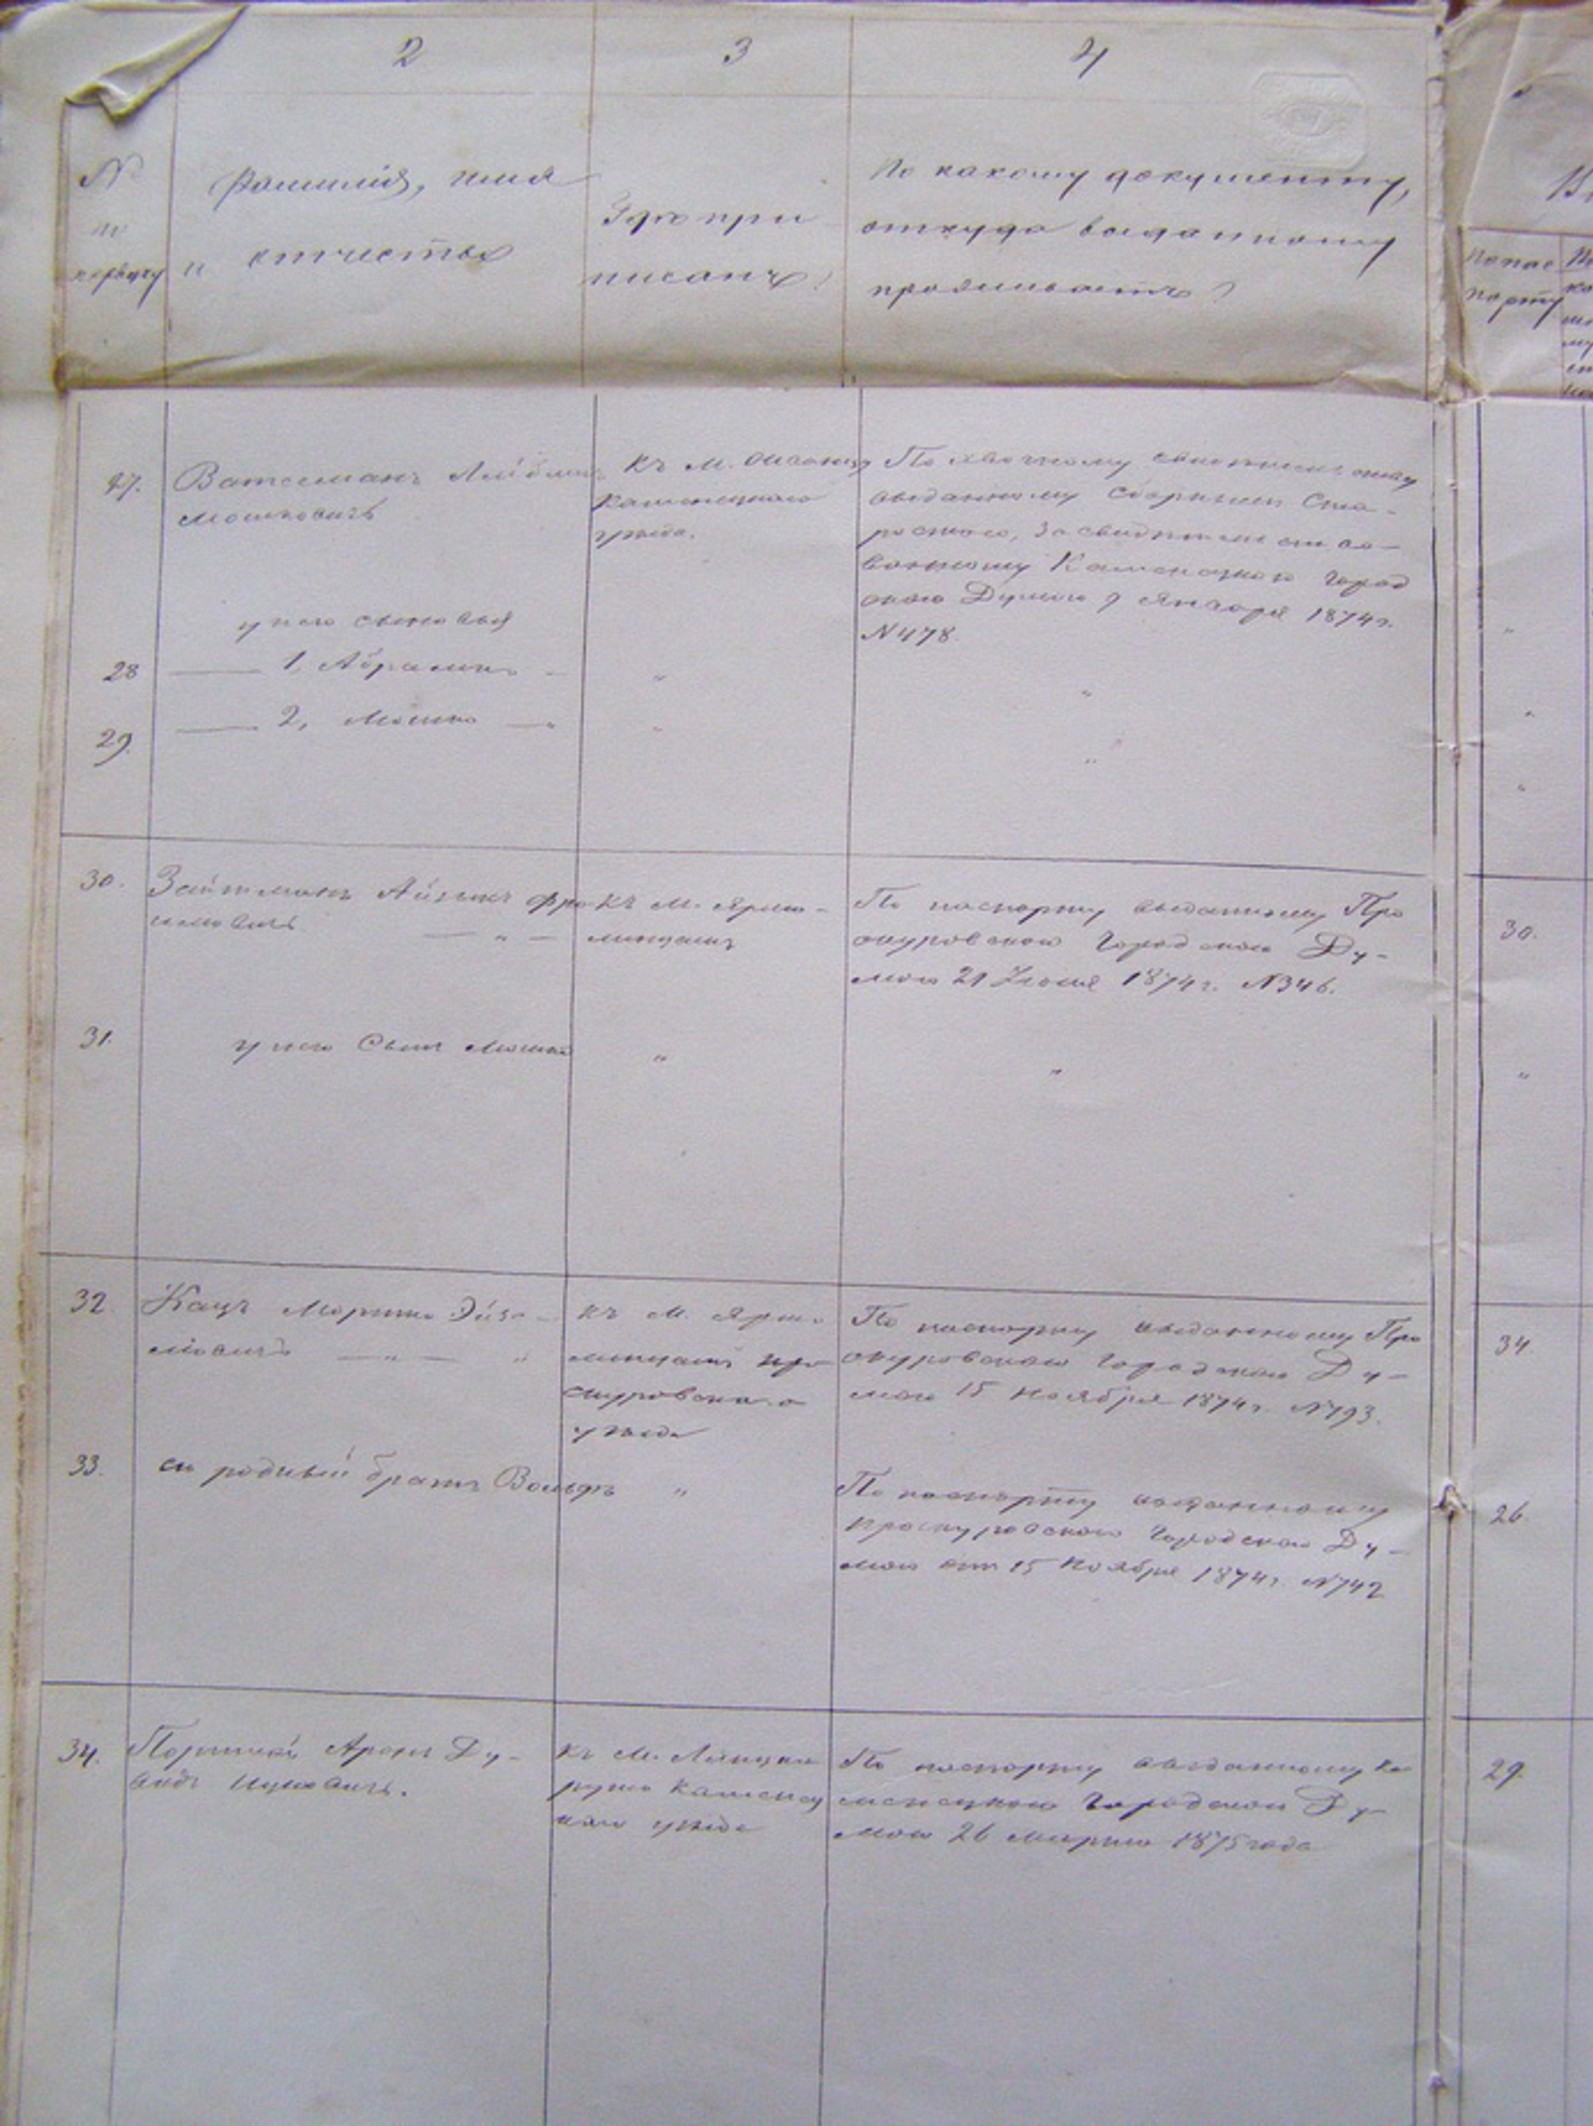 2
3
4
№
по
порядку
Фамилія, имя
и отчество
Где при
писанъ?
По какому документу,
откуда выданному
проживаетъ?
По пас
порту
27.
Ватсманъ Лейбишъ
Мошковичъ
къ м.
Каменецкаго
уѣзда.
По
выданному Сборнымъ Ста-
ростою, засвидѣтельство-
ванному Каменецкою Город
скою Думою 9 Января 1874 г.
№ 478.
у него сыновья
28
1, Абрамъ
"
"
29.
2, Мошко
"
"
30.
Зейтманъ Айзикъ Фро
имовичъ
къ м. Ярмо-
линцамъ
По паспорту выданному Про
скуровскою Городскою Ду-
мою 21 Іюня 1874 г. № 346.
30.
31.
у него Сынъ Мошко
"
"
"
32.
Кацъ Мортко Эйзе-
ловичъ
къ м. Ярмо
линцамъ про
скуровскаго
уѣзда
По паспорту выданному Про
скуровскою Городскою Ду-
мою 15 Ноября 1874 г. № 793.
34.
33.
его родный братъ Вольфъ
"
По паспорту выданному
Проскуровскою Городскою Ду-
мою отъ 15 Ноября 1874 г. № 742
26.
34.
Портной Аронъ Ду-
видъ Ицковичъ.
къ м. Лянцко
руню Каменец
каго уѣзда
По паспорту выданному Ка
менецкою Городскою Ду-
мою 26 Марта 1875 года
29.